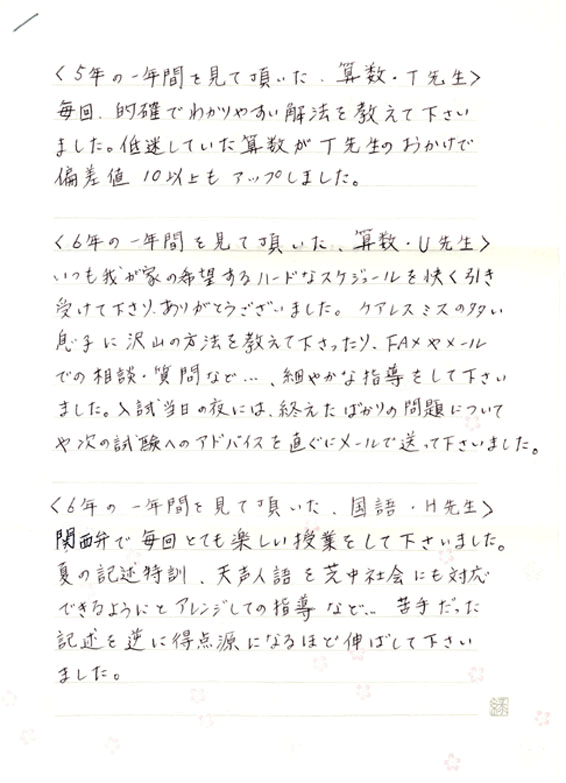 〈5年の一年間を見て頂いた、算数・T先生〉
毎回、的確でわかりやすい解法を教えて下さい
ました。低迷していた算数がT先生のおかげで
偏差値10以上もアップしました。
〈6年の一年間を見て頂いた、算数・U先生〉
いつも我が家の希望するハードなスケジュールを快く引き
受けて下さり、ありがとうございました。ケアレスミスの多い
息子に沢山の方法を教えて下さったり、FAXやメール
での相談・質問など…、細やかな指導をして下さい
ました。入試当日の夜には、終えたばかりの問題について
や次の試験へのアドバイスを直ぐにメールで送って下さいました。
〈6年の一年間を見て頂いた、国語・H先生〉
関西弁で毎回とても楽しい授業をして下さいました。
夏の記述特訓、天声人語を芝中社会にも対応
できるようにとアレンジしての指導など… 苦手だった
記述を逆に得点源になるほど伸ばして下さい
ました。